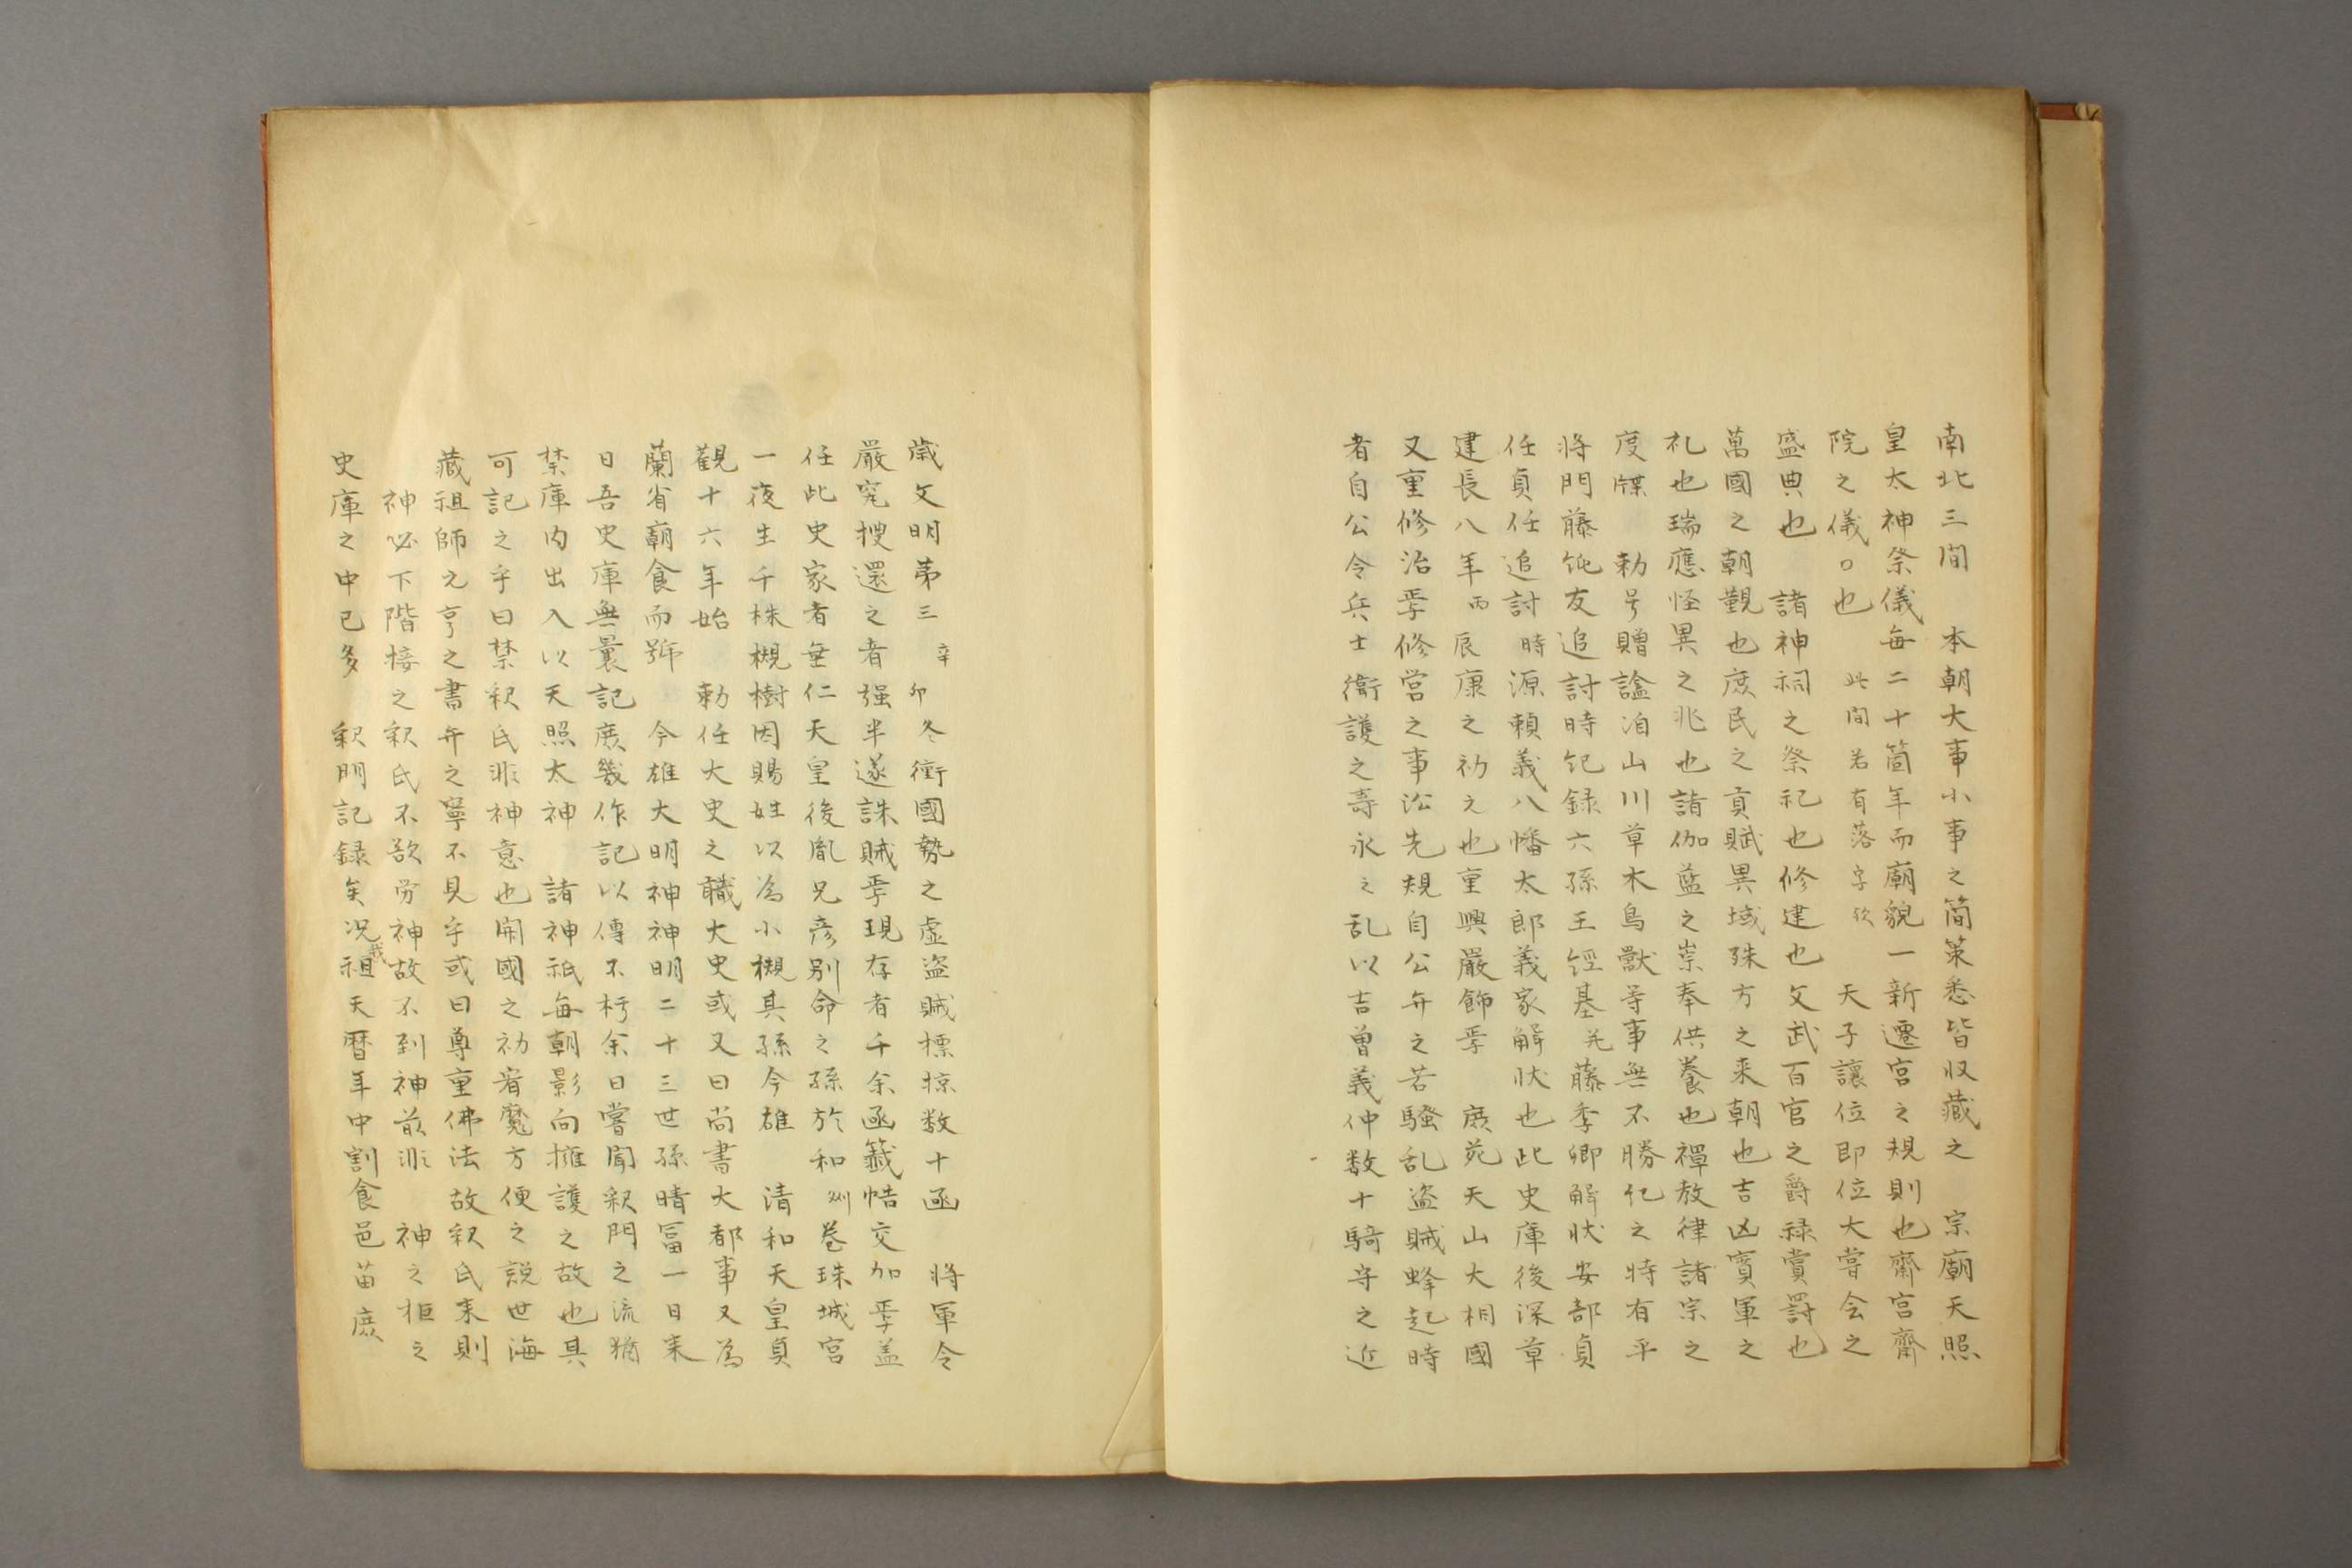 南北三間　本朝大事小事之簡策悉皆収藏之　宗廟天照
皇太神祭儀毎二十箇年而廟貌一新遷宮之規則也齋宮齋
院之儀〇也　此間若有落字歟　天子讓位即位大嘗会之
盛典也　諸神祠之祭祀也修建也文武百官之爵禄賞罰也
萬國之朝覲也庶民之貢賦異域殊方之来朝也吉凶賓軍之
礼也瑞應怪異之兆也諸伽藍之崇奉供養也禪教律諸宗之
度牒　勅号贈諡洎山川草木鳥獸等事無不勝化之特有平
将門藤純友追討時記録六孫王経基并藤季卿解状安部貞
任貞任追討時源頼義八幡太郎義家解状也此史庫後深草
建長八年丙辰康之初元也重興嚴飾焉　庶苑天山大相國
又重修治焉修営之事沿先規自公弁之若騒乱盗賊蜂起時
者自公令兵士衛護之寿永之乱以吉曽義仲数十騎守之近
歳文明第三辛卯冬衝國勢之虚盗賊標掠数十凾　将軍令
嚴究捜還之者强半遂誅賊焉現存者千余凾籤帙交加焉盖
任此史家者垂仁天皇後胤兄彦別命之孫於和州巻珠城宮
一夜生千株槻樹因賜姓以為小槻其孫今雄　清和天皇貞
觀十六年始　勅任大史之職大史或又曰尚書大都事又為
蘭省朝食而號　今雄大明神神明二十三世孫晴冨一日来
日吾史庫無曩記庶幾作記以傳不朽余日嘗聞釈門之流猶
禁庫内出入以天照太神　諸神祇毎朝影向擁護之故也其
可記之乎曰禁釈氏非神意也開國之初宥魔方便之説世海
藏祖師元亨之書弁之寧不見乎或曰尊重佛法故釈氏来則
神必下階接之釈氏不欲労神故不到神前非　神之拒之
史庫之中已多　釈門記録矣况我祖天暦年中割食邑苗庶